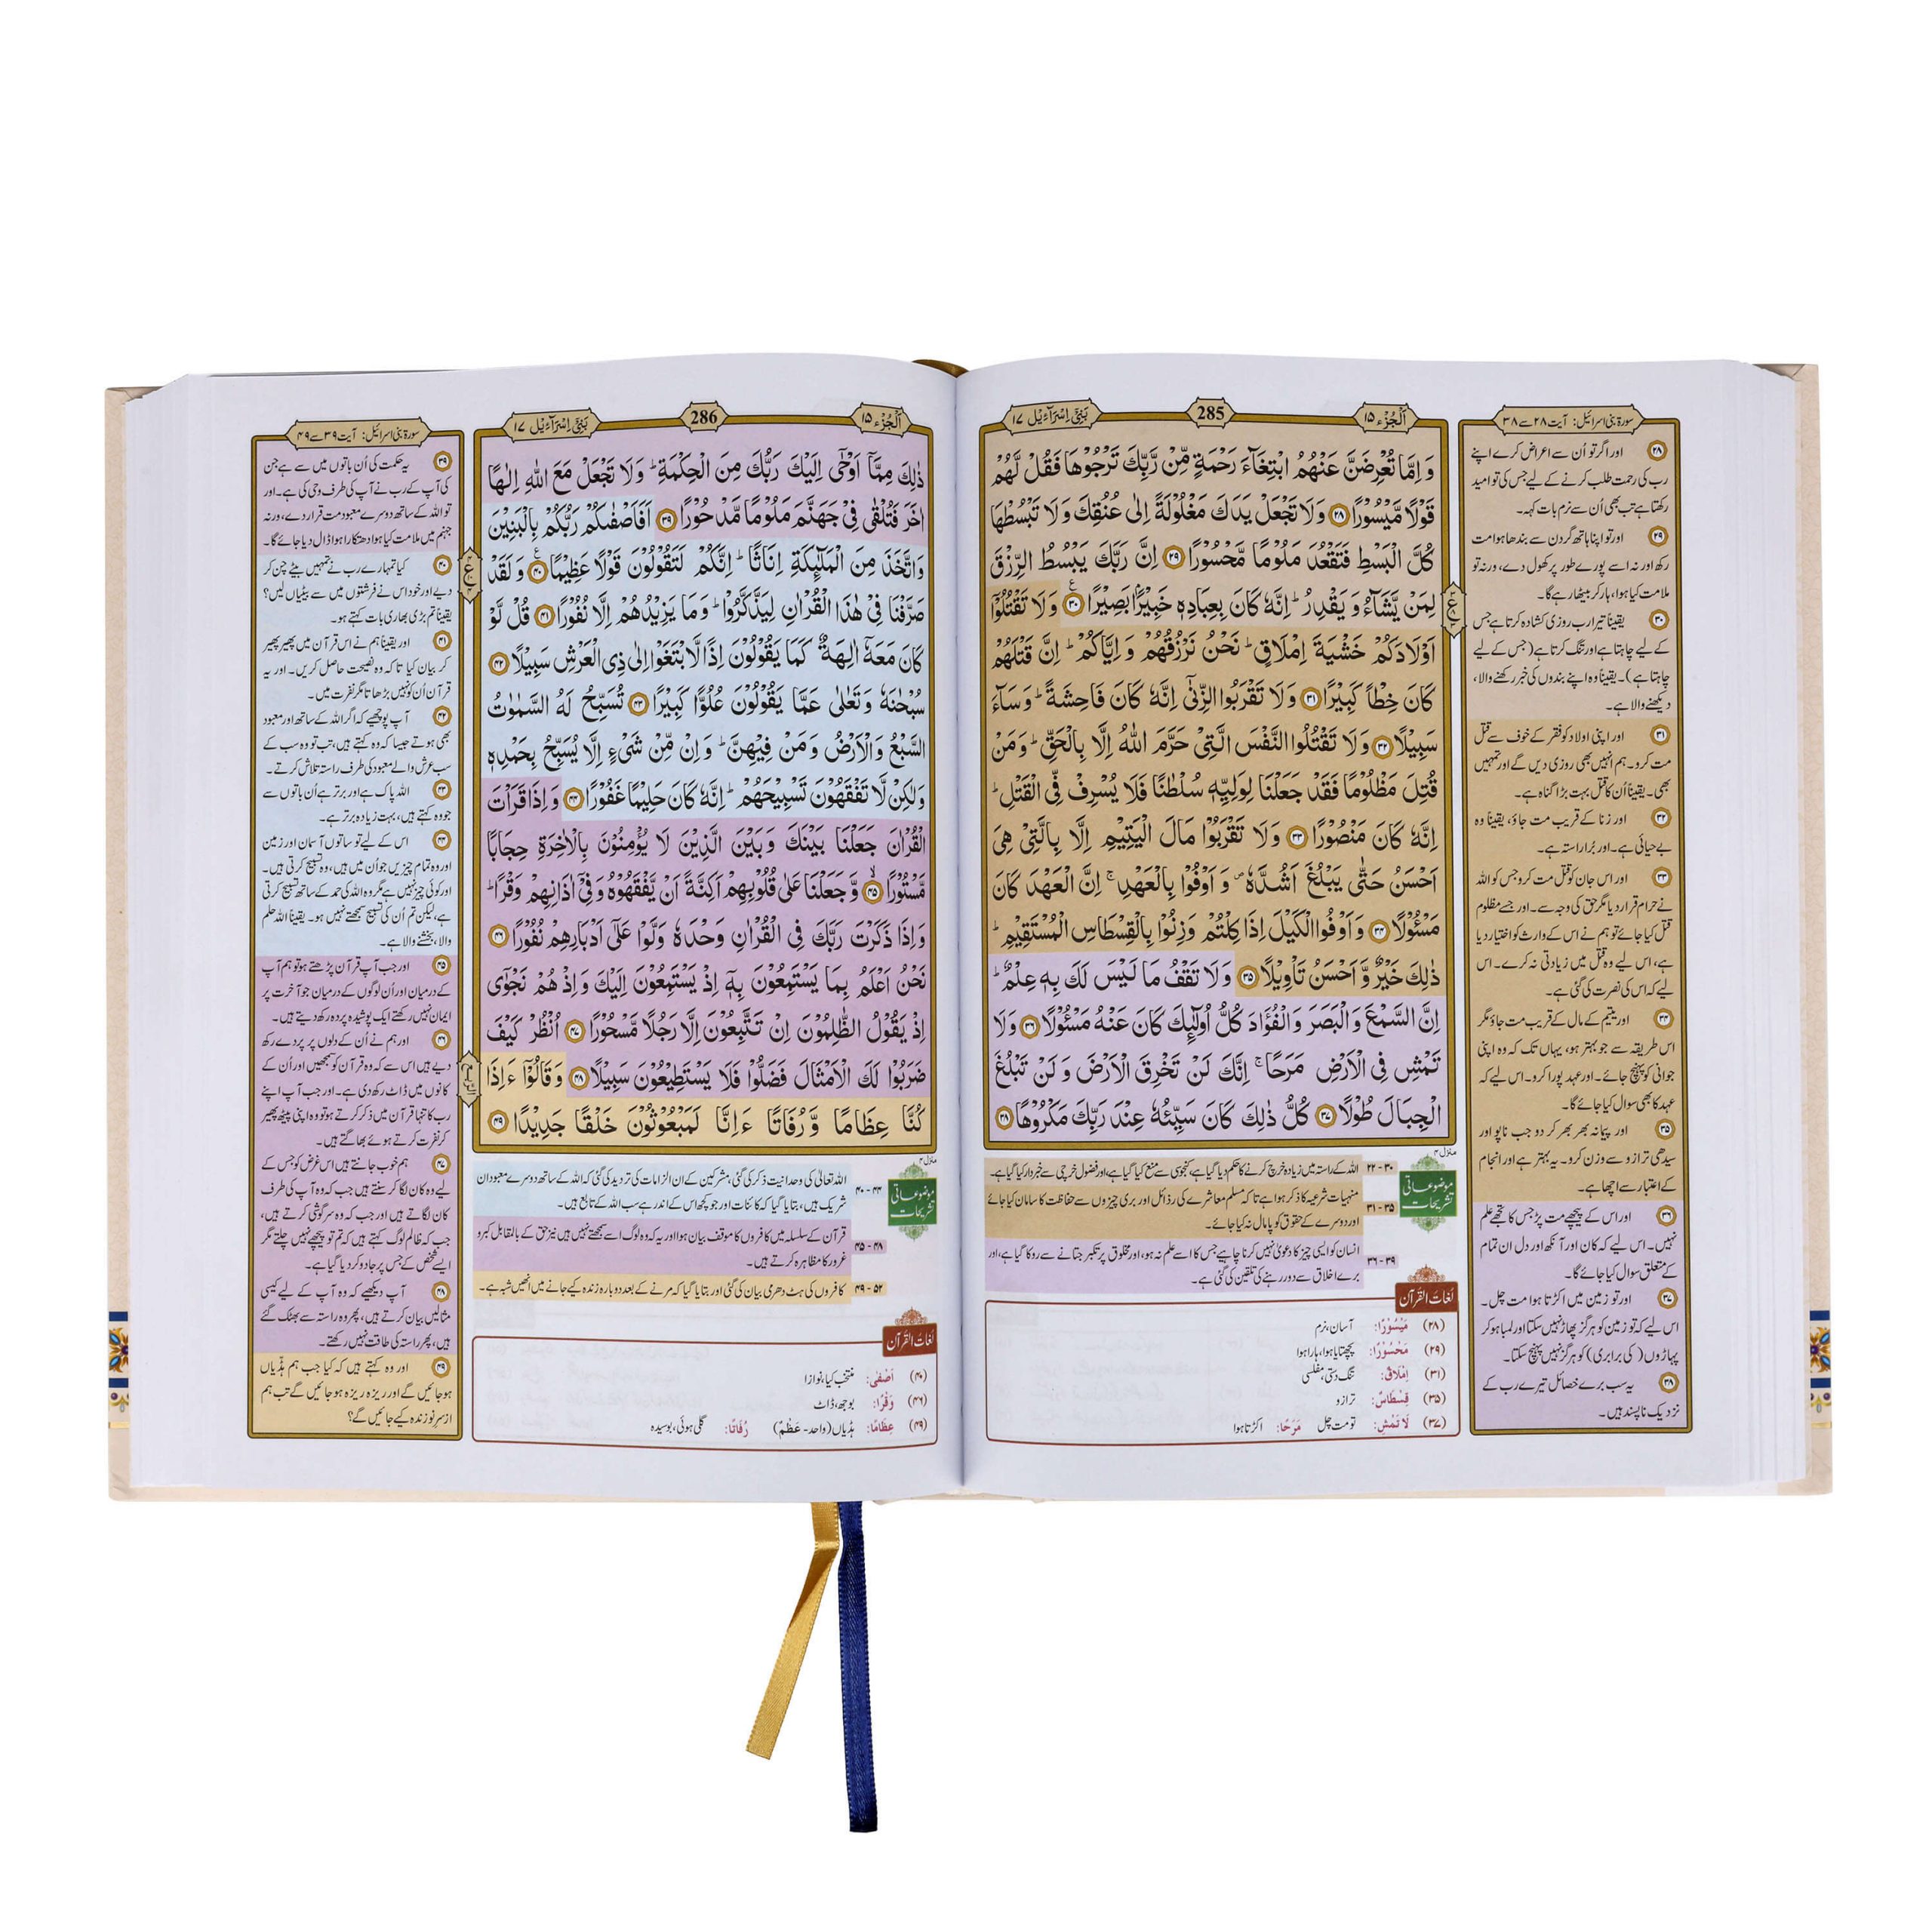 اَلْجُزْء ١٥
285
بَنِیْٓ اِسْرَآءِیْل ١٧
وَ اِمَّا تُعْرِضَنَّ عَنْهُمُ ابْتِغَآءَ رَحْمَةٍ مِّنْ رَّبِّكَ تَرْجُوْهَا فَقُلْ لَّهُمْ
قَوْلًا مَّیْسُوْرًا ۲۸ وَ لَا تَجْعَلْ یَدَكَ مَغْلُوْلَةً اِلٰی عُنُقِكَ وَ لَا تَبْسُطْهَا
كُلَّ الْبَسْطِ فَتَقْعُدَ مَلُوْمًا مَّحْسُوْرًا ۲۹ اِنَّ رَبَّكَ یَبْسُطُ الرِّزْقَ
لِمَنْ یَّشَآءُ وَ یَقْدِرُ ؕ اِنَّهٗ كَانَ بِعِبَادِهٖ خَبِیْرًۢا بَصِیْرًا ۳۰ وَ لَا تَقْتُلُوْۤا
اَوْلَادَكُمْ خَشْیَةَ اِمْلَاقٍ ؕ نَحْنُ نَرْزُقُهُمْ وَ اِیَّاكُمْ ؕ اِنَّ قَتْلَهُمْ
كَانَ خِطْاً كَبِیْرًا ۳۱ وَ لَا تَقْرَبُوا الزِّنٰۤی اِنَّهٗ كَانَ فَاحِشَةً ؕ وَ سَآءَ
سَبِیْلًا ۳۲ وَ لَا تَقْتُلُوا النَّفْسَ الَّتِیْ حَرَّمَ اللّٰهُ اِلَّا بِالْحَقِّ ؕ وَ مَنْ
قُتِلَ مَظْلُوْمًا فَقَدْ جَعَلْنَا لِوَلِیِّهٖ سُلْطٰنًا فَلَا یُسْرِفْ فِّی الْقَتْلِ ؕ
اِنَّهٗ كَانَ مَنْصُوْرًا ۳۳ وَ لَا تَقْرَبُوْا مَالَ الْیَتِیْمِ اِلَّا بِالَّتِیْ هِیَ
اَحْسَنُ حَتّٰی یَبْلُغَ اَشُدَّهٗ ۪ وَ اَوْفُوْا بِالْعَهْدِ ۚ اِنَّ الْعَهْدَ كَانَ
مَسْـُٔوْلًا ۳۴ وَ اَوْفُوا الْكَیْلَ اِذَا كِلْتُمْ وَ زِنُوْا بِالْقِسْطَاسِ الْمُسْتَقِیْمِ ؕ
ذٰلِكَ خَیْرٌ وَّ اَحْسَنُ تَاْوِیْلًا ۳۵ وَ لَا تَقْفُ مَا لَیْسَ لَكَ بِهٖ عِلْمٌ ؕ
اِنَّ السَّمْعَ وَ الْبَصَرَ وَ الْفُؤَادَ كُلُّ اُولٰٓىِٕكَ كَانَ عَنْهُ مَسْـُٔوْلًا ۳۶ وَ لَا
تَمْشِ فِی الْاَرْضِ مَرَحًا ۚ اِنَّكَ لَنْ تَخْرِقَ الْاَرْضَ وَ لَنْ تَبْلُغَ
الْجِبَالَ طُوْلًا ۳۷ كُلُّ ذٰلِكَ كَانَ سَیِّئُهٗ عِنْدَ رَبِّكَ مَكْرُوْهًا ۳۸
منزل ۴
سورۃ بنی اسرائیل: آیت ۲۸ سے ۳۸
۲۸ اور اگر تو اُن سے اعراض کرے اپنے
رب کی رحمت طلب کرنے کے لیے جس کی تو امید
رکھتا ہے تب بھی اُن سے نرم بات کہہ۔
۲۹ اور تو اپنا ہاتھ گردن سے بندھا ہوا مت
رکھ اور نہ اسے پورے طور پر کھول دے، ورنہ تو
ملامت کیا ہوا، ہار کر بیٹھا رہے گا۔
۳۰ یقیناً تیرا رب روزی کشادہ کرتا ہے جس
کے لیے چاہتا ہے اور تنگ کرتا ہے (جس کے لیے
چاہتا ہے)۔ یقیناً وہ اپنے بندوں کی خبر رکھنے والا،
دیکھنے والا ہے۔
۳۱ اور اپنی اولاد کو فقر کے خوف سے قتل
مت کرو۔ ہم انہیں بھی روزی دیں گے اور تمہیں
بھی۔ یقیناً اُن کا قتل بہت بڑا گناہ ہے۔
۳۲ اور زنا کے قریب مت جاؤ، یقیناً وہ
بے حیائی ہے۔ اور بُرا راستہ ہے۔
۳۳ اور اس جان کو قتل مت کرو جس کو اللہ
نے حرام قرار دیا مگر حق کی وجہ سے۔ اور جسے مظلوم
قتل کیا جائے تو ہم نے اس کے وارث کو اختیار دیا
ہے، اس لیے وہ قتل میں زیادتی نہ کرے۔ اس
لیے کہ اس کی نصرت کی گئی ہے۔
۳۴ اور یتیم کے مال کے قریب مت جاؤ مگر
اس طریقہ سے جو بہتر ہو، یہاں تک کہ وہ اپنی
جوانی کو پہنچ جائے۔ اور عہد پورا کرو۔ اس لیے کہ
عہد کا بھی سوال کیا جائے گا۔
۳۵ اور پیمانہ بھر بھر کر دو جب ناپو اور
سیدھی ترازو سے وزن کرو۔ یہ بہتر ہے اور انجام
کے اعتبار سے اچھا ہے۔
۳۶ اور اس کے پیچھے مت پڑ جس کا تجھے علم
نہیں۔ اس لیے کہ کان اور آنکھ اور دل ان تمام
کے متعلق سوال کیا جائے گا۔
۳۷ اور تو زمین میں اکڑتا ہوا مت چل۔
اس لیے کہ تو زمین کو ہرگز پھاڑ نہیں سکتا اور لمبا ہو کر
پہاڑوں (کی برابری) کو ہرگز نہیں پہنچ سکتا۔
۳۸ یہ سب برے خصائل تیرے رب کے
نزدیک ناپسند ہیں۔
موضوعاتی تشریحات
۲۲ - ۳۰ اللہ کے راستہ میں زیادہ خرچ کرنے کا حکم دیا گیا ہے، کنجوسی سے منع کیا گیا ہے، اور فضول خرچی سے خبردار کیا گیا ہے۔
۳۱ - ۳۵ منہیات شرعیہ کا ذکر ہوا ہے تاکہ مسلم معاشرے کی رذائل اور بری چیزوں سے حفاظت کا سامان کیا جائے
اور دوسرے کے حقوق کو پامال نہ کیا جائے۔
۳۶ - ۳۹ انسان کو ایسی چیز کا دعویٰ نہیں کرنا چاہیے جس کا اسے علم نہ ہو، اور مخلوق پر تکبر جتانے سے روکا گیا ہے، اور
برے اخلاق سے دور رہنے کی تلقین کی گئی ہے۔
لغات القرآن
(۲۸) مَیْسُوْرًا: آسان، نرم
(۲۹) مَحْسُوْرًا: پچھتایا ہوا، ہارا ہوا
(۳۱) اِمْلَاق: تنگ دستی، مفلسی
(۳۵) قِسْطَاس: ترازو
(۳۷) لَا تَمْشِ: تو مت چل مَرَحًا: اکڑتا ہوا
اَلْجُزْء ١٥
286
بَنِیْٓ اِسْرَآءِیْل ١٧
ذٰلِكَ مِمَّاۤ اَوْحٰۤی اِلَیْكَ رَبُّكَ مِنَ الْحِكْمَةِ ؕ وَ لَا تَجْعَلْ مَعَ اللّٰهِ اِلٰهًا
اٰخَرَ فَتُلْقٰی فِیْ جَهَنَّمَ مَلُوْمًا مَّدْحُوْرًا ۳۹ اَفَاَصْفٰىكُمْ رَبُّكُمْ بِالْبَنِیْنَ
وَ اتَّخَذَ مِنَ الْمَلٰٓىِٕكَةِ اِنَاثًا ؕ اِنَّكُمْ لَتَقُوْلُوْنَ قَوْلًا عَظِیْمًا ۴۰ وَ لَقَدْ
صَرَّفْنَا فِیْ هٰذَا الْقُرْاٰنِ لِیَذَّكَّرُوْا ؕ وَ مَا یَزِیْدُهُمْ اِلَّا نُفُوْرًا ۴۱ قُلْ لَّوْ
كَانَ مَعَهٗۤ اٰلِهَةٌ كَمَا یَقُوْلُوْنَ اِذًا لَّابْتَغَوْا اِلٰی ذِی الْعَرْشِ سَبِیْلًا ۴۲
سُبْحٰنَهٗ وَ تَعٰلٰی عَمَّا یَقُوْلُوْنَ عُلُوًّا كَبِیْرًا ۴۳ تُسَبِّحُ لَهُ السَّمٰوٰتُ
السَّبْعُ وَ الْاَرْضُ وَ مَنْ فِیْهِنَّ ؕ وَ اِنْ مِّنْ شَیْءٍ اِلَّا یُسَبِّحُ بِحَمْدِهٖ
وَ لٰكِنْ لَّا تَفْقَهُوْنَ تَسْبِیْحَهُمْ ؕ اِنَّهٗ كَانَ حَلِیْمًا غَفُوْرًا ۴۴ وَ اِذَا قَرَاْتَ
الْقُرْاٰنَ جَعَلْنَا بَیْنَكَ وَ بَیْنَ الَّذِیْنَ لَا یُؤْمِنُوْنَ بِالْاٰخِرَةِ حِجَابًا
مَّسْتُوْرًا ۴۵ وَّ جَعَلْنَا عَلٰی قُلُوْبِهِمْ اَكِنَّةً اَنْ یَّفْقَهُوْهُ وَ فِیْۤ اٰذَانِهِمْ وَقْرًا ؕ
وَ اِذَا ذَكَرْتَ رَبَّكَ فِی الْقُرْاٰنِ وَحْدَهٗ وَلَّوْا عَلٰۤی اَدْبَارِهِمْ نُفُوْرًا ۴۶
نَحْنُ اَعْلَمُ بِمَا یَسْتَمِعُوْنَ بِهٖۤ اِذْ یَسْتَمِعُوْنَ اِلَیْكَ وَ اِذْ هُمْ نَجْوٰۤی
اِذْ یَقُوْلُ الظّٰلِمُوْنَ اِنْ تَتَّبِعُوْنَ اِلَّا رَجُلًا مَّسْحُوْرًا ۴۷ اُنْظُرْ كَیْفَ
ضَرَبُوْا لَكَ الْاَمْثَالَ فَضَلُّوْا فَلَا یَسْتَطِیْعُوْنَ سَبِیْلًا ۴۸ وَ قَالُوْۤا ءَاِذَا
كُنَّا عِظَامًا وَّ رُفَاتًا ءَاِنَّا لَمَبْعُوْثُوْنَ خَلْقًا جَدِیْدًا ۴۹
منزل ۴
سورۃ بنی اسرائیل: آیت ۳۹ سے ۴۹
۳۹ یہ حکمت کی اُن باتوں میں سے ہے جن
کی آپ کے رب نے آپ کی طرف وحی کی ہے۔ اور
تو اللہ کے ساتھ دوسرے معبود مت قرار دے، ورنہ
جہنم میں ملامت کیا ہوا دھتکارا ہوا ڈال دیا جائے گا۔
۴۰ کیا تمہارے رب نے تمہیں بیٹے چن کر
دیے اور خود اس نے فرشتوں میں سے بیٹیاں لیں؟
یقیناً تم بڑی بھاری بات کہتے ہو۔
۴۱ اور یقیناً ہم نے اس قرآن میں پھیر پھیر
کر بیان کیا تاکہ وہ نصیحت حاصل کریں۔ اور یہ
قرآن اُن کو نہیں بڑھاتا مگر نفرت میں۔
۴۲ آپ پوچھیے کہ اگر اللہ کے ساتھ اور معبود
بھی ہوتے جیسا کہ وہ کہتے ہیں، تب تو وہ سب کے
سب عرش والے معبود کی طرف راستہ تلاش کرتے۔
۴۳ اللہ پاک ہے اور برتر ہے اُن باتوں سے
جو وہ کہتے ہیں، بہت زیادہ برتر ہے۔
۴۴ اس کے لیے تو ساتوں آسمان اور زمین
اور وہ تمام چیزیں جو اُن میں ہیں، وہ تسبیح کرتی ہیں۔
اور کوئی چیز نہیں ہے مگر وہ اللہ کی حمد کے ساتھ تسبیح کرتی
ہے، لیکن تم اُن کی تسبیح سمجھتے نہیں ہو۔ یقیناً اللہ حلم
والا، بخشنے والا ہے۔
۴۵ اور جب آپ قرآن پڑھتے ہو تو ہم آپ
کے درمیان اور اُن لوگوں کے درمیان جو آخرت پر
ایمان نہیں رکھتے ایک پوشیدہ پردہ رکھ دیتے ہیں۔
۴۶ اور ہم نے اُن کے دلوں پر پردے رکھ
دیے ہیں اس سے کہ وہ قرآن کو سمجھیں اور اُن کے
کانوں میں ڈاٹ رکھ دی ہے۔ اور جب آپ اپنے
رب کا تنہا قرآن میں ذکر کرتے ہو تو وہ اپنی پیٹھ پھیر
کر نفرت کرتے ہوئے بھاگتے ہیں۔
۴۷ ہم خوب جانتے ہیں اس غرض کو جس کے
لیے وہ کان لگا کر سنتے ہیں جب کہ وہ آپ کی طرف
کان لگاتے ہیں اور جب کہ وہ سرگوشی کرتے ہیں،
جب کہ ظالم لوگ کہتے ہیں کہ تم تو پیچھے نہیں چلتے مگر
ایسے شخص کے جس پر جادو کر دیا گیا ہے۔
۴۸ آپ دیکھیے کہ وہ آپ کے لیے کیسی
مثالیں بیان کرتے ہیں، پھر وہ راستہ سے بھٹک گئے
ہیں، پھر راستہ کی طاقت نہیں رکھتے۔
۴۹ اور وہ کہتے ہیں کہ کیا جب ہم ہڈیاں
ہو جائیں گے اور ریزہ ریزہ ہو جائیں گے تب ہم
ازسرنو زندہ کیے جائیں گے؟
موضوعاتی تشریحات
۴۰ - ۴۴ اللہ تعالیٰ کی وحدانیت ذکر کی گئی، مشرکین کے ان الزامات کی تردید کی گئی کہ اللہ کے ساتھ دوسرے معبودان
شریک ہیں، بتایا گیا کہ کائنات اور جو کچھ اس کے اندر ہے سب اللہ کے تابع ہیں۔
۴۵ - ۴۸ قرآن کے سلسلہ میں کافروں کا موقف بیان ہوا اور یہ کہ وہ لوگ اسے سمجھتے نہیں ہیں نیز حق کے بالمقابل کبر و
غرور کا مظاہرہ کرتے ہیں۔
۴۹ - ۵۲ کافروں کی ہٹ دھرمی بیان کی گئی اور بتایا گیا کہ مرنے کے بعد دوبارہ زندہ کیے جانے میں انھیں شبہ ہے۔
لغات القرآن
(۴۰) اَصْفٰی: منتخب کیا، نوازا
(۴۶) وَقْرًا: بوجھ، ڈاٹ
(۴۹) عِظَامًا: ہڈیاں (واحد - عَظْمٌ) رُفَاتًا: گلی ہوئی، بوسیدہ